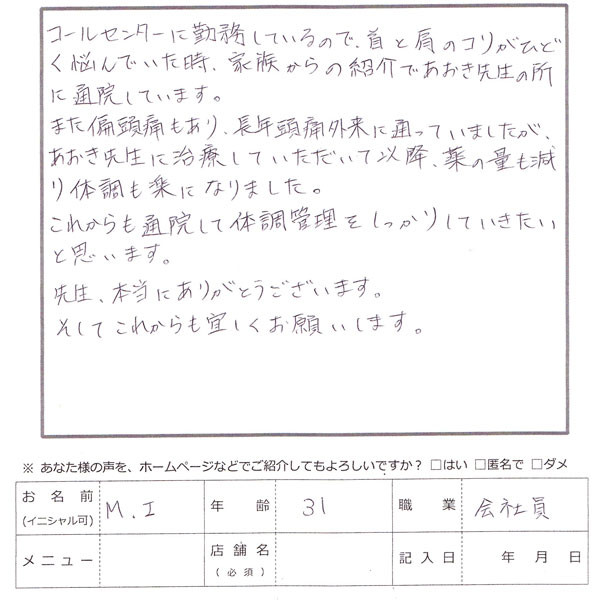 コールセンターに勤務しているので、首と肩のコリがひど
く悩んでいた時、家族からの紹介であおき先生の所
に通院しています。
また偏頭痛もあり、長年頭痛外来に通っていましたが、
あおき先生に治療していただいて以降、薬の量も減
り体調も楽になりました。
これからも通院して体調管理をしっかりしていきたい
と思います。
先生、本当にありがとうございます。
そしてこれからも宜しくお願いします。
※ あなた様の声を、ホームページなどでご紹介してもよろしいですか？ □はい □匿名で □ダメ
お名前 (イニシャル可) M.I 年齢 31 職業 会社員
メニュー 店舗名 (必須) 記入日 年 月 日